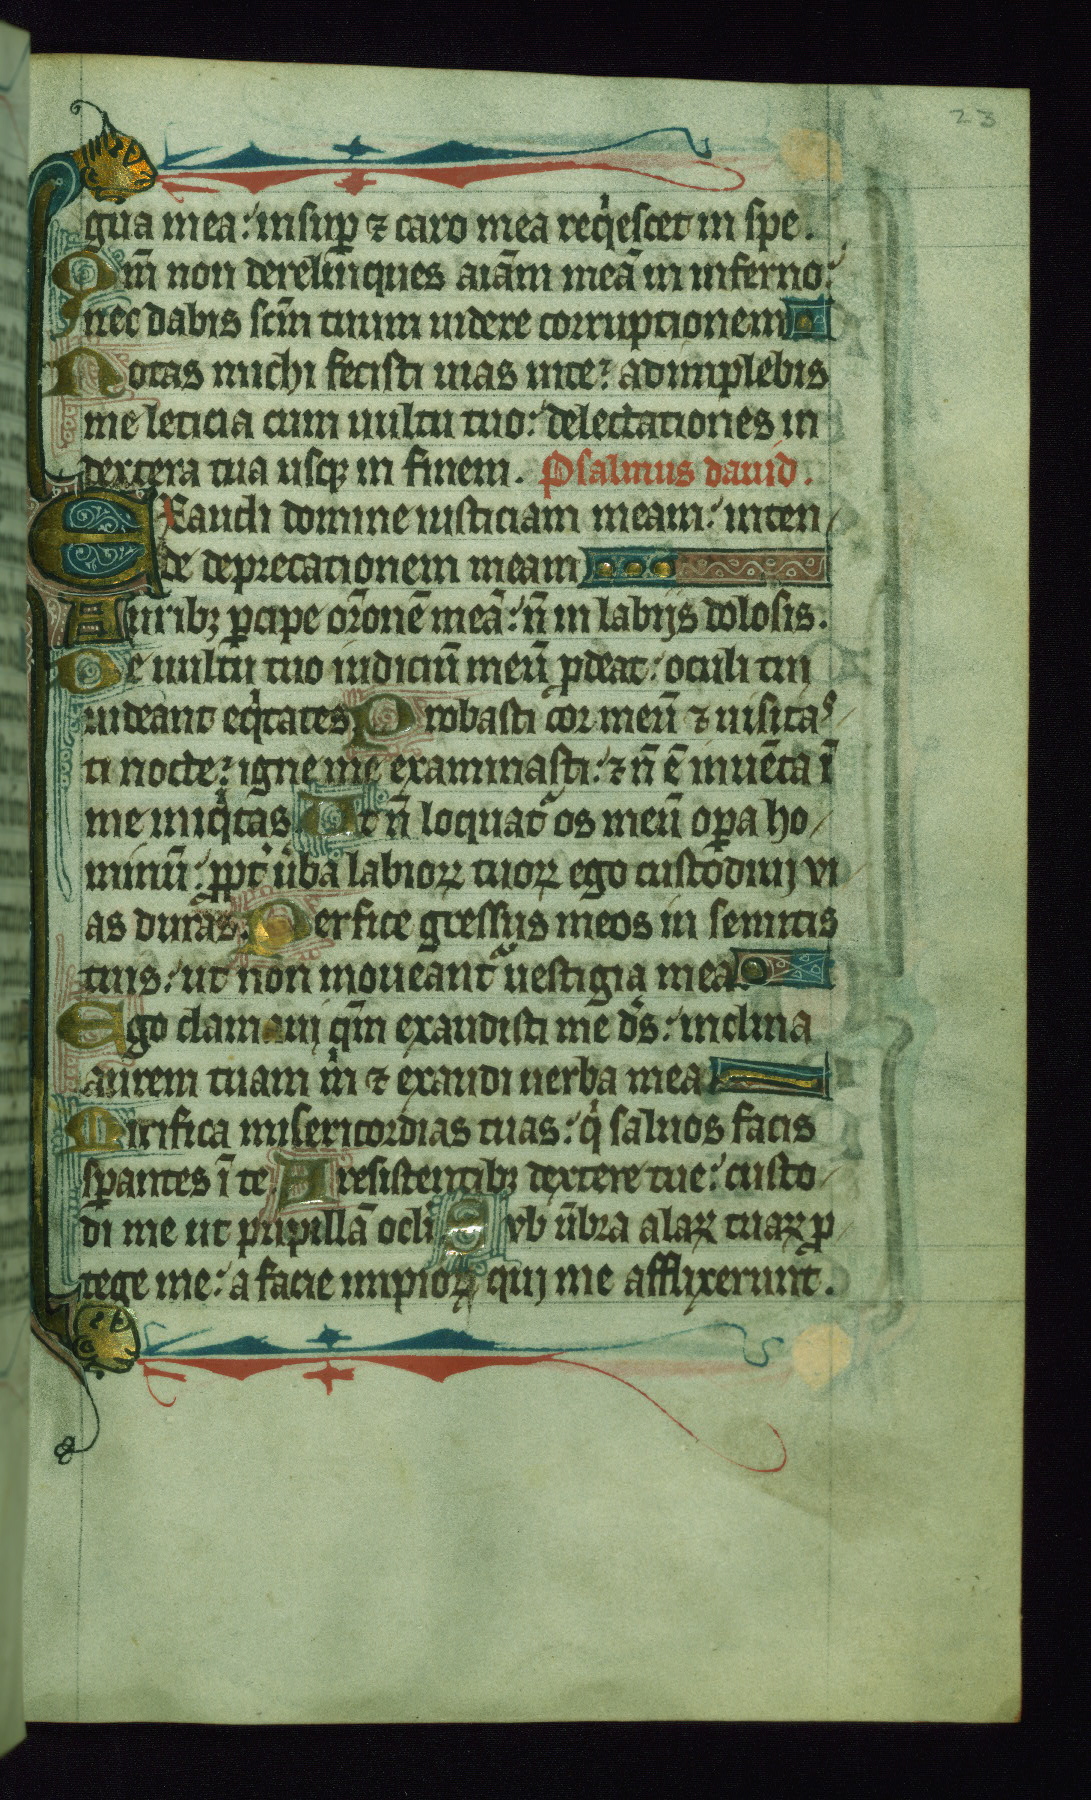 23
gua mea: insup̱ ⁊ caro mea reqͥescet in spe.
Qm̄ non derelinques aīam meā in inferno:
nec dabis scm̄ tuum uidere corruptionem
Notas michi fecisti uias uite: adimplebis
me leticia cum uultu tuo: delectationes in
dextera tua usqꝫ in finem. Psalmus dauid.
EXaudi domine iusticiam meam: inten/
de deprecationem meam
Auribꝫ ꝑcipe or̄onē meā: n̄ in labijs dolosis.
De uultu tuo iudiciū meū ꝓdeat: oculi tui
uideant eqͥtates Probasti cor meū ⁊ uisitas/
ti nocte: igne me examinasti: ⁊ n̄ ē inuēta ī
me iniqͥtas Ut n̄ loquatᷣ os meū oꝑa ho/
minū: ꝓpt̓ ūba labioꝝ tuoꝝ ego custodiui vi
as duras. Perfice gressus meos in semitis
tuis: ut non moueantᷣ uestigia mea
Ego clamaui qm̄ exaudisti me ds̄: inclina
aurem tuam m̄ ⁊ exaudi uerba mea
Mirifica misericordias tuas: qͥ saluos facis
sꝑantes ī te. A resistentibꝫ dextere tue: custo/
di me ut pupillā ocli Sub ūbra alaꝝ tuaꝝ ꝓ/
tege me: a facie impioꝝ qui me afflixerunt.